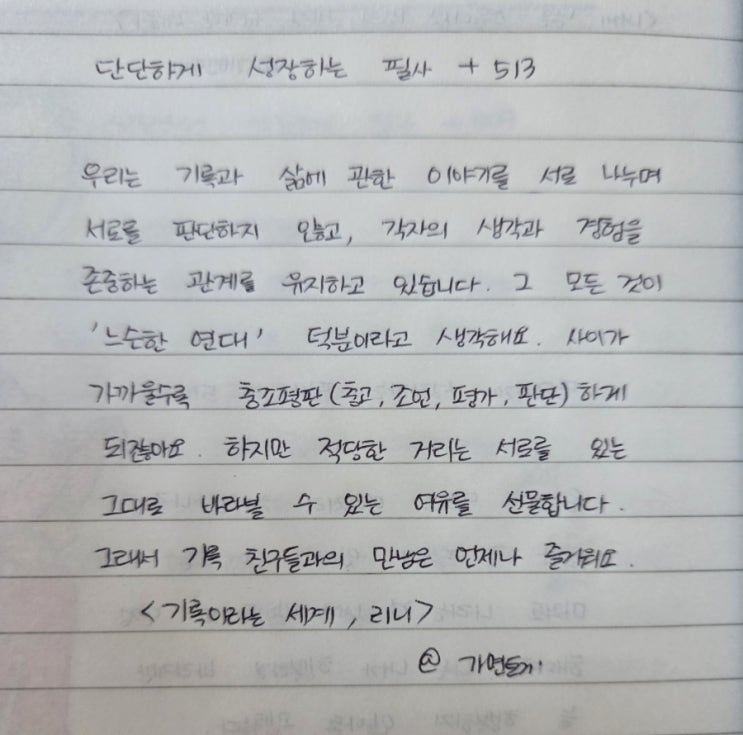 단단하게 성장하는 필사 + 513
우리는 기록과 삶에 관한 이야기를 서로 나누며
서로를 판단하지 않고, 각자의 생각과 경험을
존중하는 관계를 유지하고 있습니다. 그 모든 것이
'느슨한 연대' 덕분이라고 생각해요. 사이가
가까울수록 충조평판(충고, 조언, 평가, 판단)하게
되잖아요. 하지만 적당한 거리는 서로를 있는
그대로 바라볼 수 있는 여유를 선물합니다.
그래서 기록 친구들과의 만남은 언제나 즐거워요.
<기록이라는 세계, 리니>
@